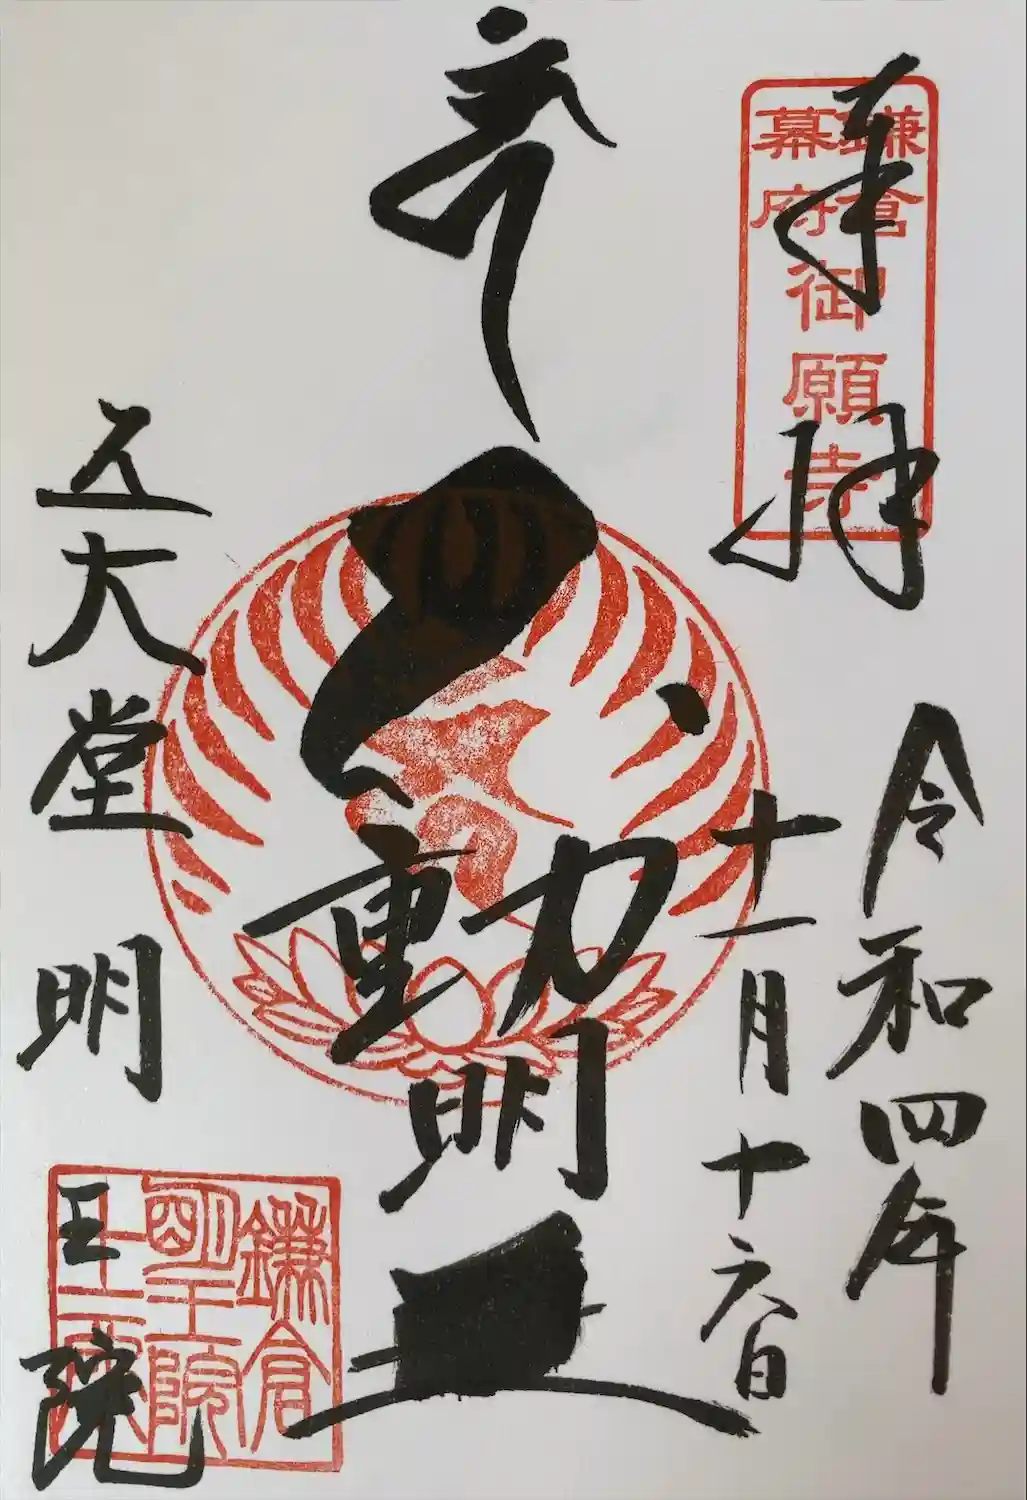 奉拝
鎌倉
幕府
御願寺
令和四年
十一月十六日
動明
五大堂明王院
鎌倉
明王院